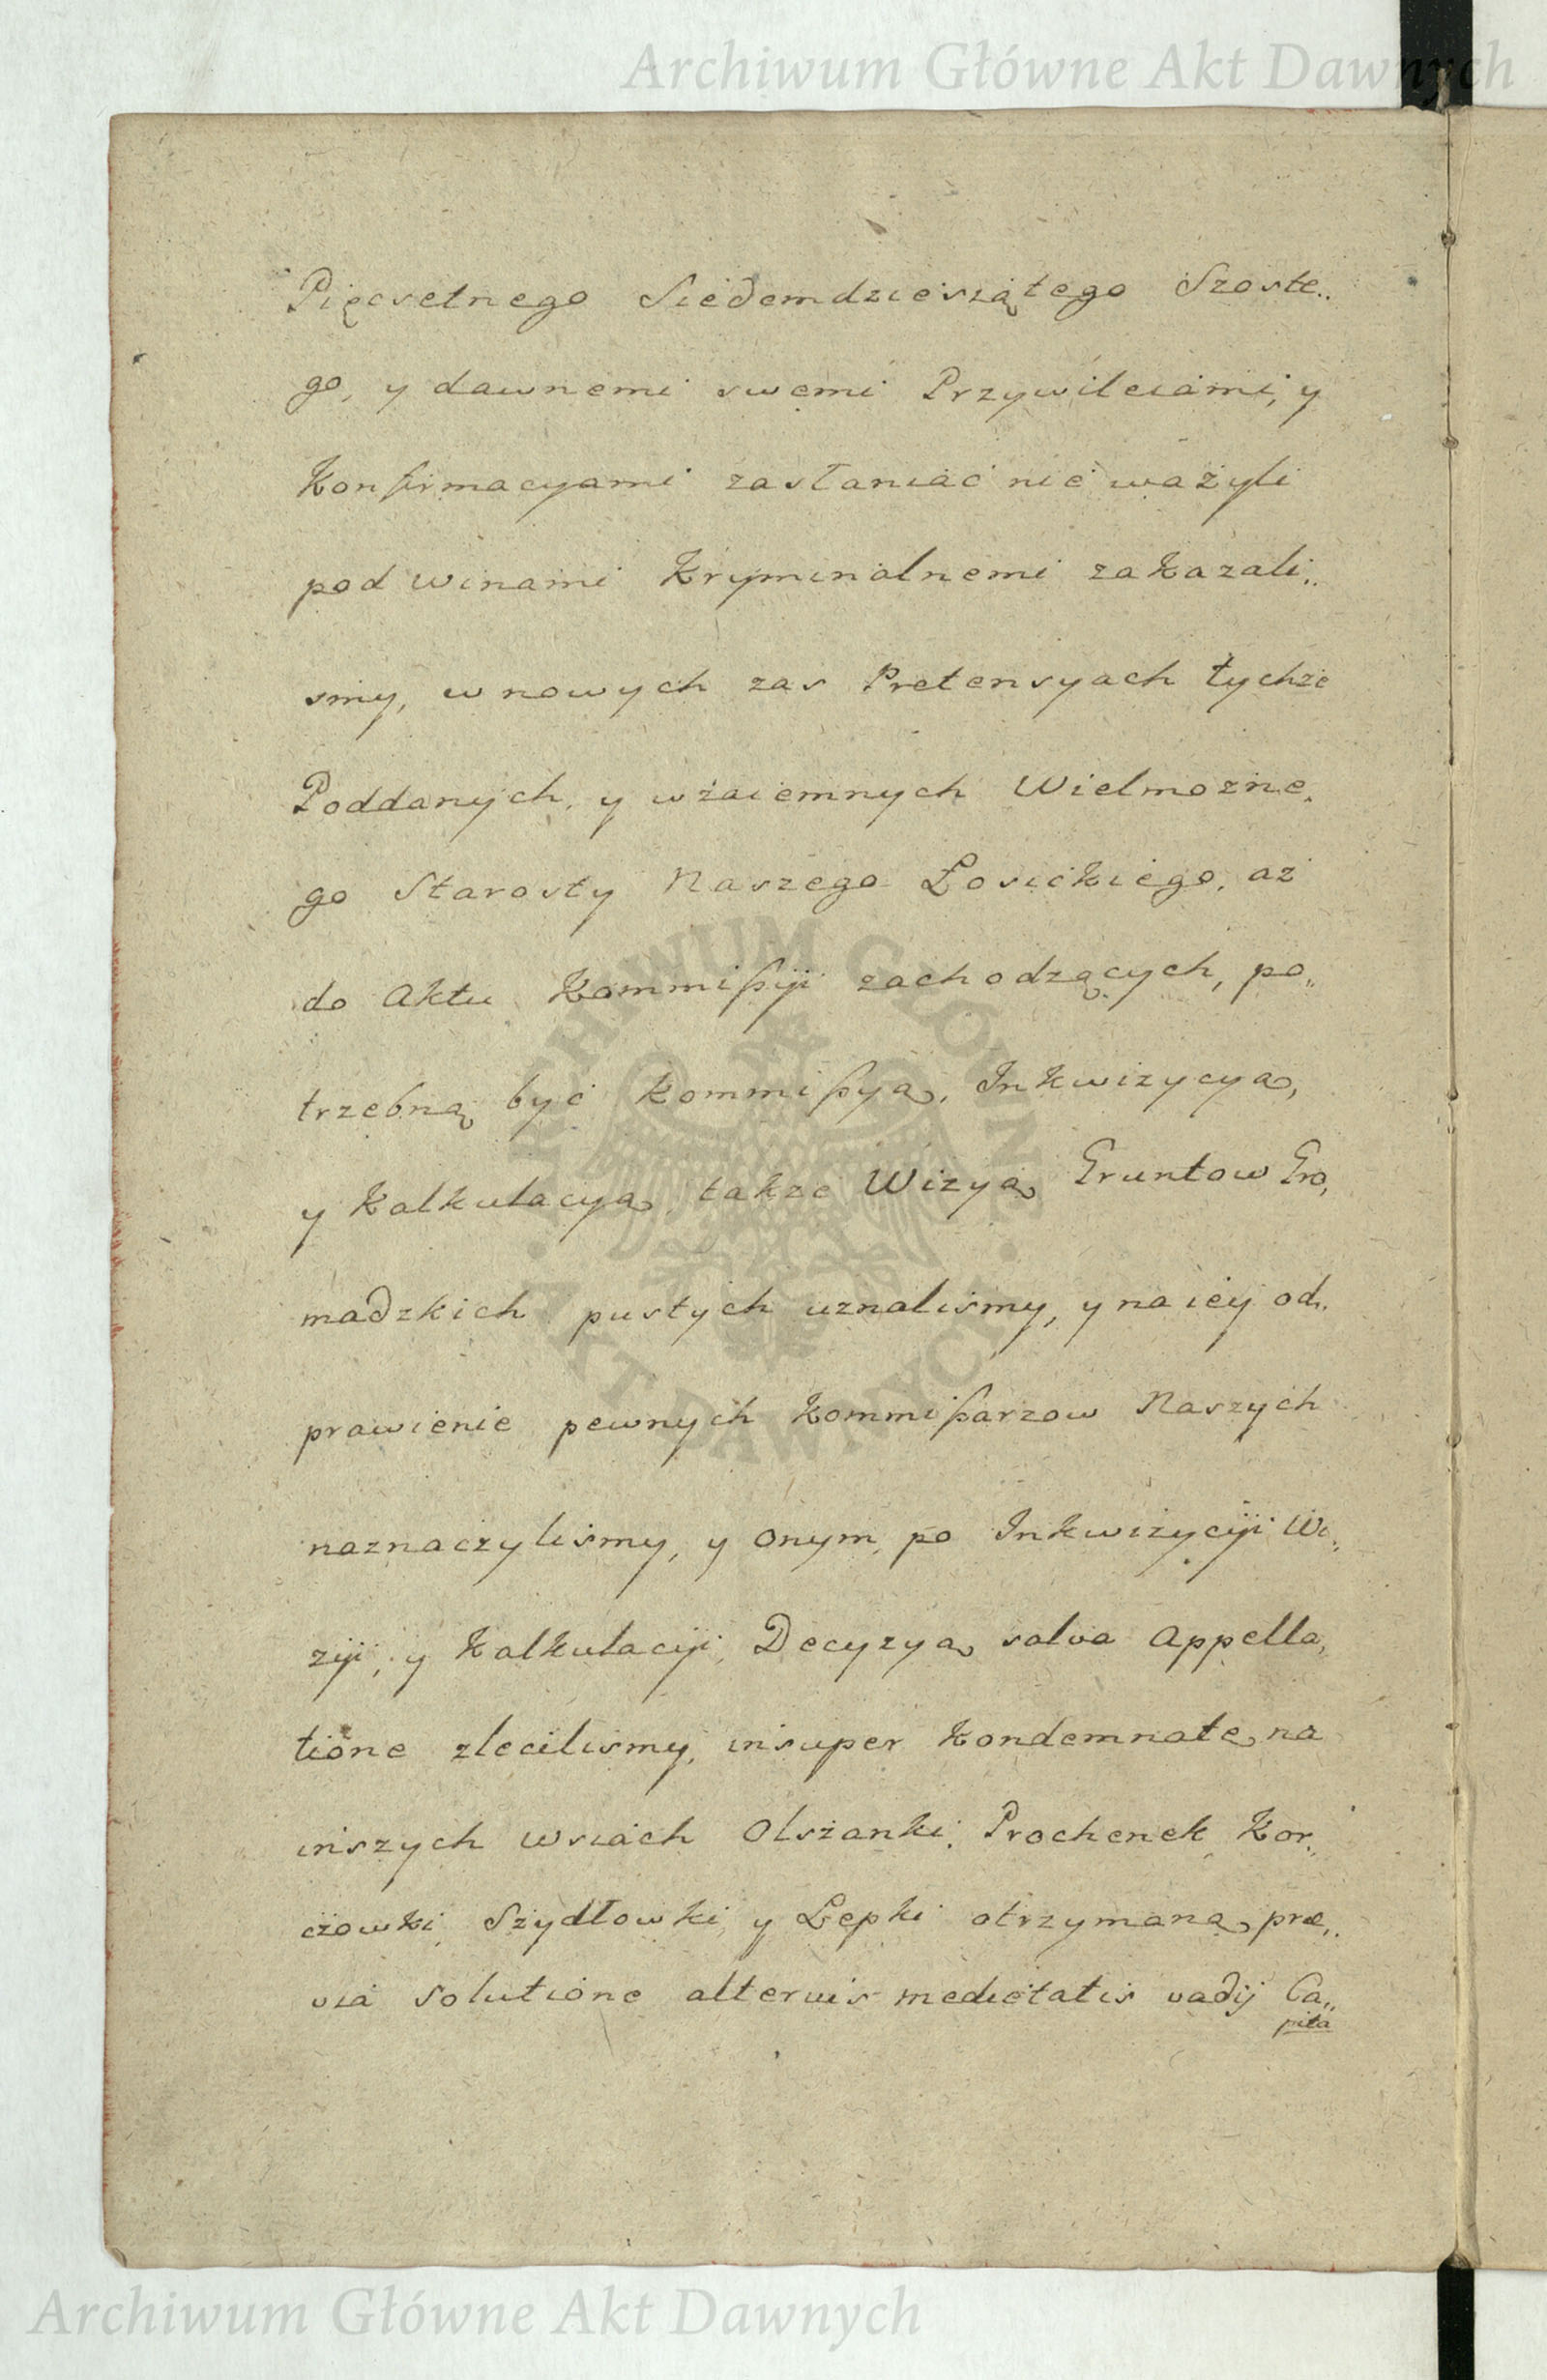 Archiwum Główne Akt Dawnych
Pięcsetnego Siedemdziesiątego Szoste„
go, y dawnemi swemi Przywileiami, y
Konfirmacyami zasłaniać nie ważyli
pod winami Kryminalnemi zakazali„
smy, w nowych zas Pretensyach tychże
Poddanych, y wzaiemnych Wielmozne„
go Starosty Naszego Łosickiego, aż
do Aktu Kommißyi zachodzących, po„
trzebną być Kommißyą, Inkwizycyą,
y Kalkulacyą, także Wizyą Gruntow Gro„
madzkich pustych uznaliśmy, y na iey od„
prawienie pewnych Kommißarzow Naszych
naznaczyliśmy, y onym, po Inkwizycyi Wi„
zyi, y Kalkulacyi, Decyzyą salva Appella„
tione zleciliśmy, insuper Kondemnatę na
inszych wsiach Olszanki, Prochenek, Kor„
czowki, Szydłowki, y Łepki otrzymaną, præ„
via solutione alterius medietatis vadij Ca„
pita
ARCHIWUM GŁÓWNE · AKT DAWNYCH ·
Archiwum Główne Akt Dawnych